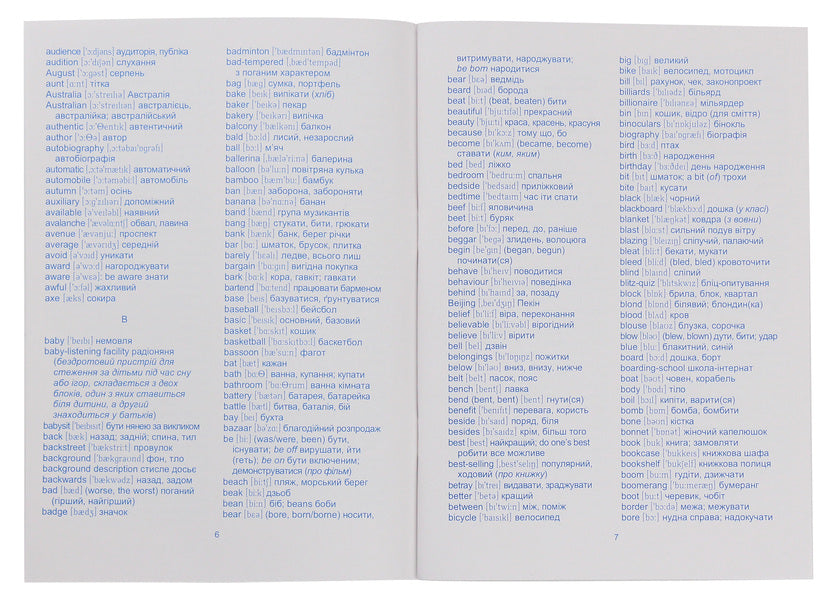 audience ['ɔ:djəns] аудиторія, публіка
audition [ɔ:'dıʃən] слухання
August ['ɔ:gəst] серпень
aunt [ɑ:nt] тітка
Australia [ɔ:'streılıə] Австралія
Australian [ɔ:'streılıən] австралієць,
австралійка; австралійський
authentic [ɔ:'θentık] автентичний
author ['ɔ:θə] автор
autobiography [,ɔ:təbaı'ɒgrəfı]
автобіографія
automatic [,ɔ:tə'mætık] автоматичний
automobile ['ɔ:təməbi:l] автомобіль
autumn ['ɔ:təm] осінь
auxiliary [ɔ:g'zılıərı] допоміжний
available [ə'veıləbl] наявний
avalanche ['ævəlɑ:nʃ] обвал, лавина
avenue ['ævənju:] проспект
average ['ævərıdʒ] середній
avoid [ə'vɔıd] уникати
award [ə'wɔ:d] нагороджувати
aware [ə'weə]: be aware знати
awful ['ɔ:fəl] жахливий
axe [æks] сокира
B
baby ['beıbı] немовля
baby-listening facility радіоняня
(бездротовий пристрій для
стеження за дітьми під час сну
або ігор, складається з двох
блоків, один з яких ставиться
біля дитини, а другий
знаходиться у батьків)
babysit ['beıbısıt] бути нянею за викликом
back [bæk] назад; задній; спина, тил
backstreet ['bækstri:t] провулок
background ['bækgraʊnd] фон, тло
background description стисле досьє
backwards ['bækwədz] назад, задом
bad [bæd] (worse, the worst) поганий
(гірший, найгірший)
badge [bædʒ] значок
badminton ['bædmıntən] бадмінтон
bad-tempered [,bæd'tempəd]
з поганим характером
bag [bæg] сумка, портфель
bake [beık] випікати (хліб)
baker ['beıkə] пекар
bakery ['beıkərı] випічка
balcony ['bælkənı] балкон
bald [bɔ:ld] лисий, незарослий
ball [bɔ:l] м'яч
ballerina [,bælə'ri:nə] балерина
balloon [bə'lu:n] повітряна кулька
bamboo [bæm'bu:] бамбук
ban [bæn] заборона, забороняти
banana [bə'nɑ:nə] банан
band [bænd] група музикантів
bang [bæŋ] стукати, бити, грюкати
bank [bæŋk] банк, берег річки
bar [bɑ:] шматок, брусок, плитка
barely ['beəlı] ледве, всього лиш
bargain ['bɑ:gın] вигідна покупка
bark [bɑ:k] кора, гавкіт; гавкати
bartend ['bɑ:tend] працювати барменом
base [beıs] базуватися, ґрунтуватися
baseball ['beısbɔ:l] бейсбол
basic ['beısık] основний, базовий
basket ['bɑ:skıt] кошик
basketball ['bɑ:skıtbɔ:l] баскетбол
bassoon [bæ'su:n] фагот
bat [bæt] кажан
bath [bɑ:θ] ванна, купання; купати
bathroom ['bɑ:θrum] ванна кімната
battery ['bætən] батарея, батарейка
battle [bætl] битва, баталія, бій
bay [beı] бухта
bazaar [bə'zɑ:] благодійний розпродаж
be [bi:] (was/were, been) бути,
існувати; be off вирушати, йти
(геть); be on бути включеним;
демонструватися (про фільм)
beach [bi:tʃ] пляж, морський берег
beak [bi:k] дзьоб
bean [bi:n] біб; beans боби
bear [beə] (bore, born/borne) носити,
6
витримувати, народжувати;
be born народитися
bear [beə] ведмідь
beard [bıəd] борода
beat [bi:t] (beat, beaten) бити
beautiful ['bju:tıfəl] прекрасний
beauty ['bju:tı] краса, красень, красуня
because [bı'kɔ:z] тому що, бо
become [bı'kʌm] (became, become)
ставати (ким, яким)
bed [bed] ліжко
bedroom ['bedru:m] спальня
bedside ['bedsaıd] приліжковий
bedtime ['bedtaım] час іти спати
beef [bi:f] яловичина
beet [bi:t] буряк
before [bı'fɔ:] перед, до, раніше
beggar ['begə] злидень, волоцюга
begin [be'gın] (began, begun)
починати(ся)
behave [bı'heıv] поводитися
behaviour [bı'heıvıə] поведінка
behind [bı'haınd] за, позаду
Beijing [,beı'dʒıŋ] Пекін
belief [bı'li:f] віра, переконання
believable [bı'li:vəbl] вірогідний
believe [bı'li:v] вірити
bell [bel] дзвін
belongings [bı'lɒŋıŋz] пожитки
below [bı'ləʊ] вниз, внизу, нижче
belt [belt] пасок, пояс
bench [bentʃ] лавка
bend (bent, bent) [bent] гнути(ся)
benefit ['benıfıt] перевага, користь
beside [bı'saıd] поряд, біля
besides [bı'saıdz] крім, більш того
best [best] найкращий; do one's best
робити все можливе
best-selling [,best'selıŋ] популярний,
ходовий (про книжку)
betray [bı'treı] видавати, зраджувати
better ['betə] кращий
between [bı'twi:n] між, поміж
bicycle ['baısıkl] велосипед
big [bıg] великий
bike [baık] велосипед, мотоцикл
bill [bıl] рахунок, чек, законопроект
billiards ['bılıədz] більярд
billionaire ['bılıənɛə] мільярдер
bin [bın] кошик, відро (для сміття)
binoculars [bı'nɒkjuləz] бінокль
biography [baı'ɒgrəfı] біографія
bird [bɜ:d] птах
birth [bɜ:θ] народження
birthday ['bɜ:θdeı] день народження
bit [bıt] шматок; a bit (of) трохи
bite [baıt] кусати
black [blæk] чорний
blackboard ['blækbɔ:d] дошка (у класі)
blanket ['blæŋkət] ковдра (з вовни)
blast [blɑ:st] сильний подув вітру
blazing ['bleızıŋ] сліпучий, палаючий
bleat [bli:t] бекати, мукати
bleed [bli:d] (bled, bled) кровоточити
blind [blaınd] сліпий
blitz-quiz ['blıtskwız] бліц-опитування
block [blɒk] брила, блок, квартал
blond [blɒnd] білявий; блондин(ка)
blood [blʌd] кров
blouse [blaʊz] блузка, сорочка
blow [bləʊ] (blew, blown) дути, бити; удар
blue [blu:] блакитний, синій
board [bɔ:d] дошка, борт
boarding-school школа-інтернат
boat [bəʊt] човен, корабель
body ['bɒdı] тіло
boil [bɔıl] кипіти, варити(ся)
bomb [bɒm] бомба, бомбити
bone [bəʊn] кістка
bonnet ['bɒnət] жіночий капелюшок
book [buk] книга; замовляти
bookcase ['bukkeıs] книжкова шафа
bookshelf ['bukʃelf] книжкова полиця
boom [bu:m] гудіти, дзижчати
boomerang ['bu:məræŋ] бумеранг
boot [bu:t] черевик, чобіт
border ['bɔ:də] межа; межувати
bore [bɔ:] нудна справа; надокучати
7